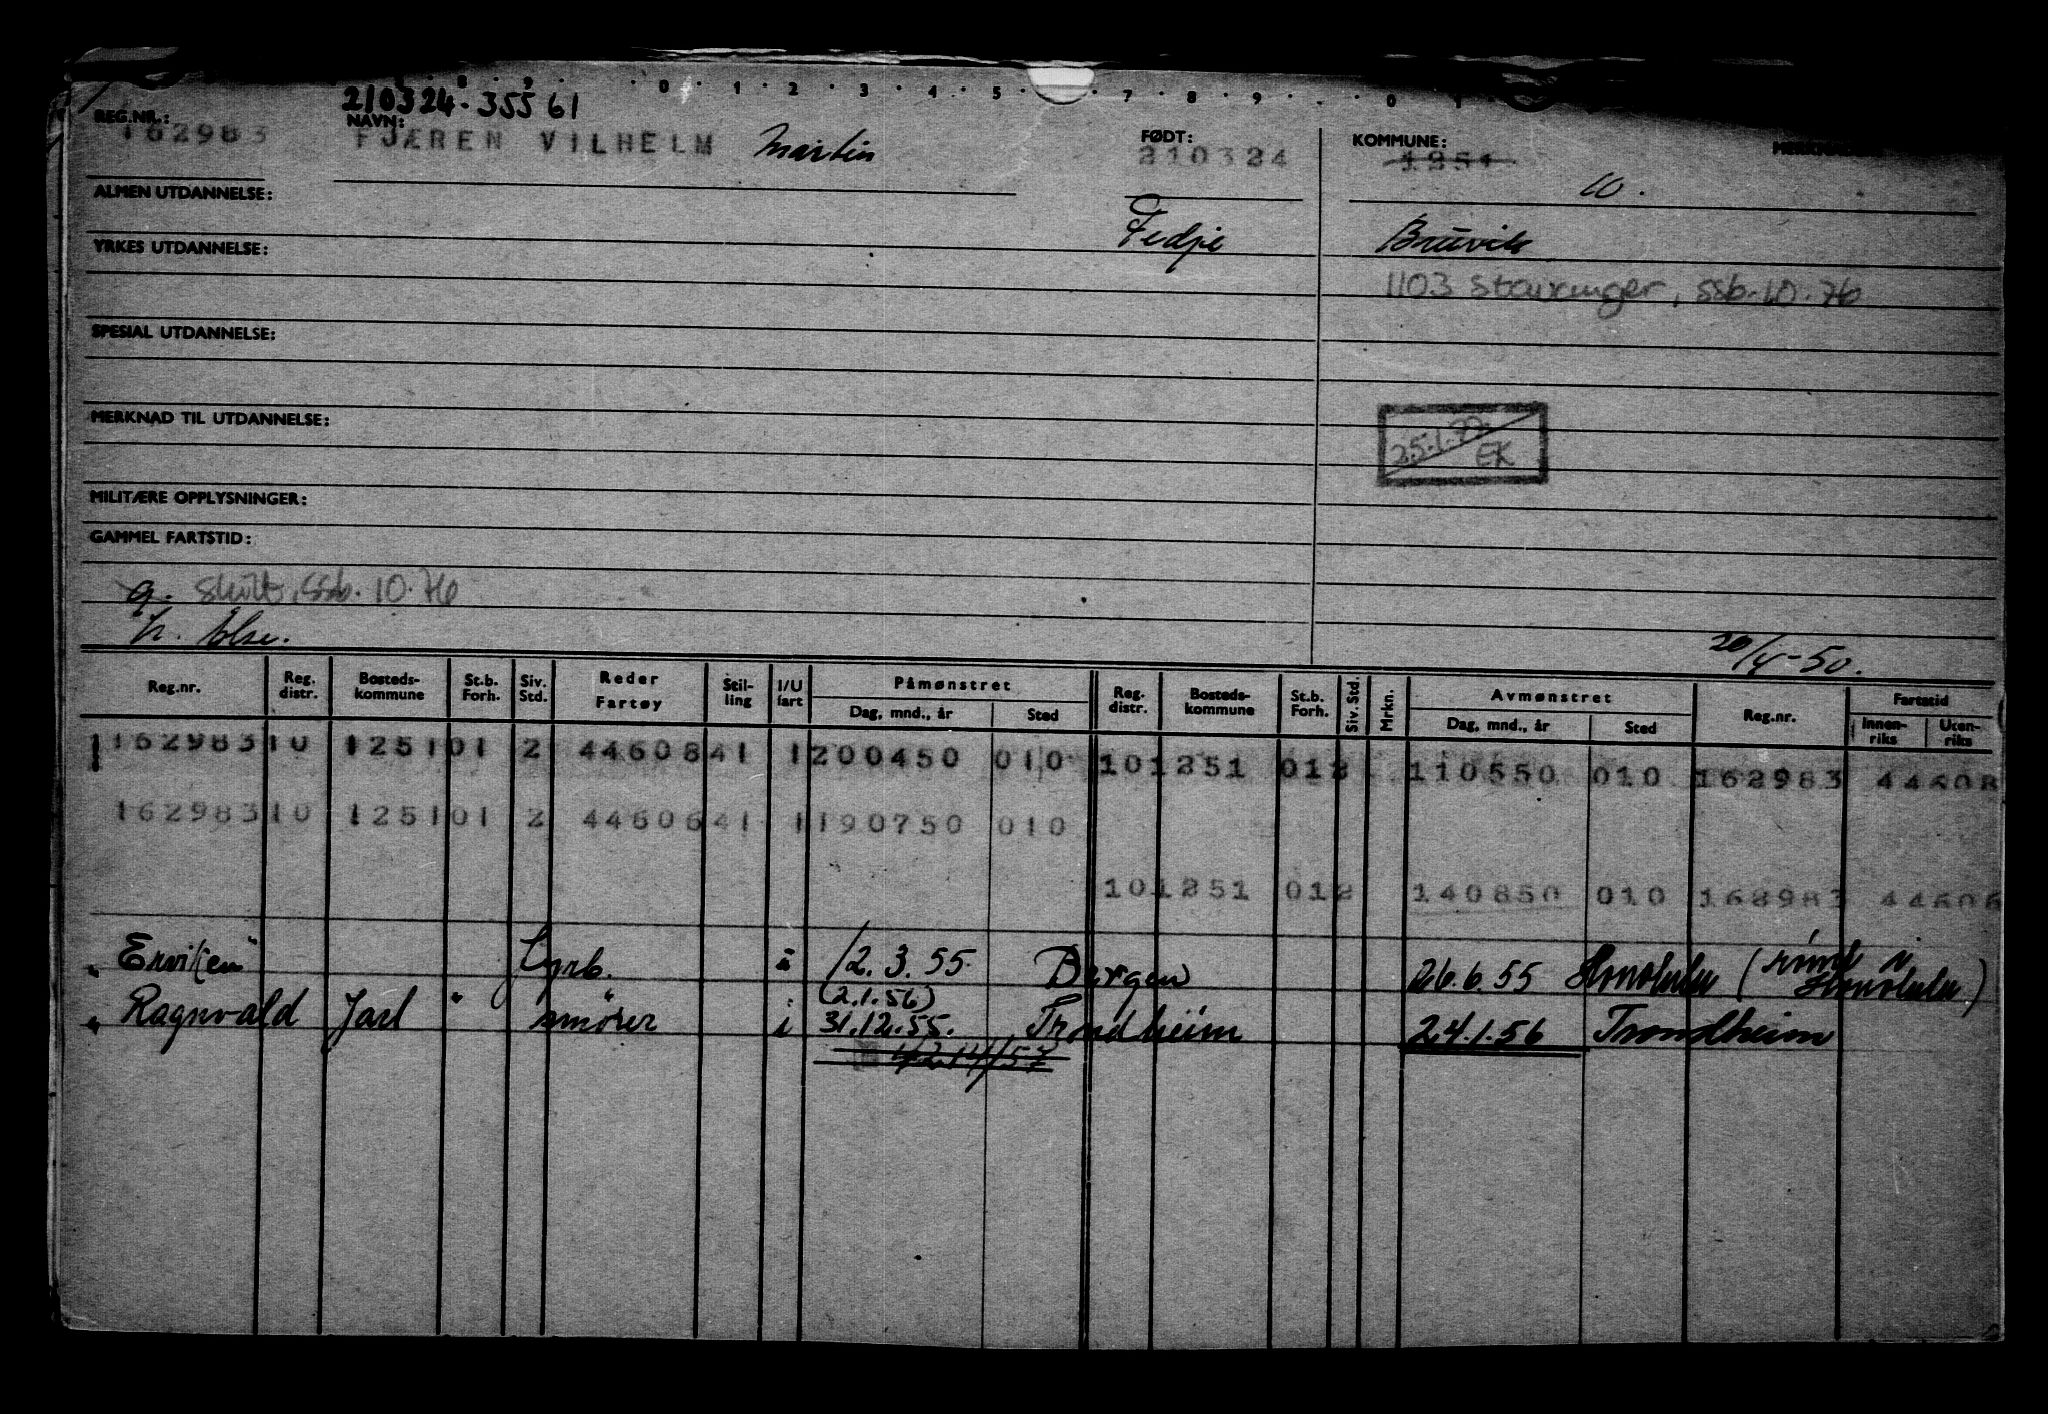 8 9 0 1 2 3 4 5 7 8 9 0 1
210324.35561
REG.NR.: NAVN: FØDT: KOMMUNE:
162983 FJÆREN VILHELM Martin 210324 1251
10.
ALMEN UTDANNELSE:
Fedje Bruvik
YRKES UTDANNELSE:
1103 Stavanger, ssb.10.76
SPESIAL UTDANNELSE:
MERKNAD TIL UTDANNELSE:
25.1.77
EK
MILITÆRE OPPLYSNINGER:
GAMMEL FARTSTID:
g. skilt, ssb. 10.76
h. Else.
20/4-50.
Reg.nr. Reg. distr. Bosteds-kommune St.b. Forh. Siv. Std. Reder Fartøy Stil-ling I/U fart Påmønstret Dag, mnd., år Sted Reg. distr. Bosteds-kommune St.b. Forh. Siv. Std. Mrkn. Avmønstret Dag, mnd., år Sted Reg.nr. Fartstid Innen-riks Uten-riks
162983 10 1251 01 2 44608 41 1 200450 010 10 1251 01 2 110550 010 162983 44608
162983 10 1251 01 2 44606 41 1 190750 010
10 1251 01 2 140850 010 162983 44606
" Erviken" fyrb. u 12.3.55 Bergen 26.6.55 Honolulu (rømt i Honolulu)
(2.1.56)
" Ragnvald Jarl " smører i 31.12.55. Trondheim 24.1.56 Trondheim